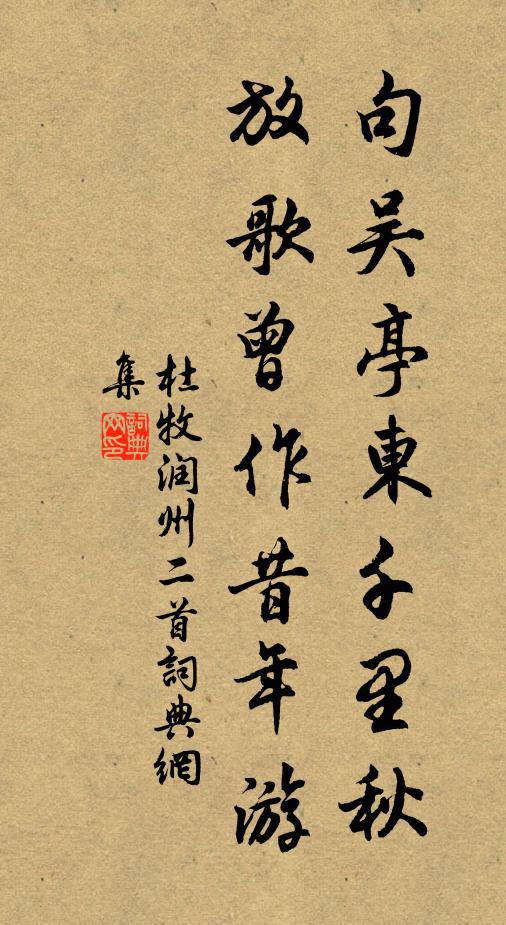 句吴亭東千里秋
放歌曾作昔年游
杜牧润州二首詞典網
集
詞典網印